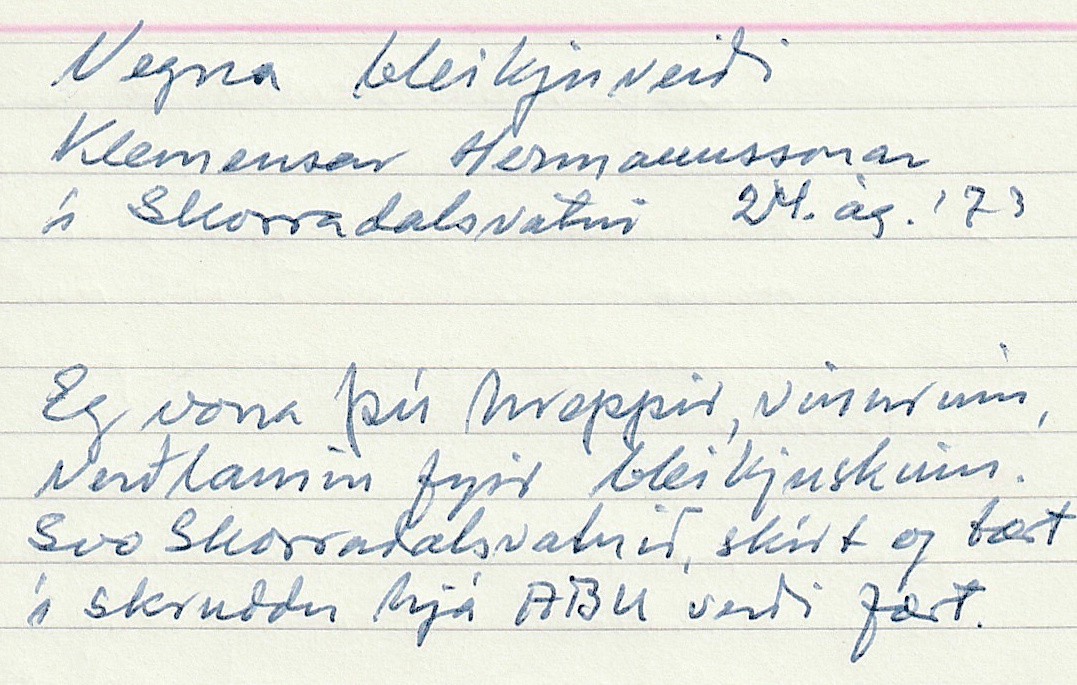 Vegna bleikjuveiði
Klemensar Hermannssonar
í Skorradalsvatni 24. ág. '73
Eg vona þú hreppir, vinur minn,
verðlaunin fyrir bleikjuskinn.
Svo Skorradalsvatnið, skírt og tært
í skruddu hjá ABU verði fært.